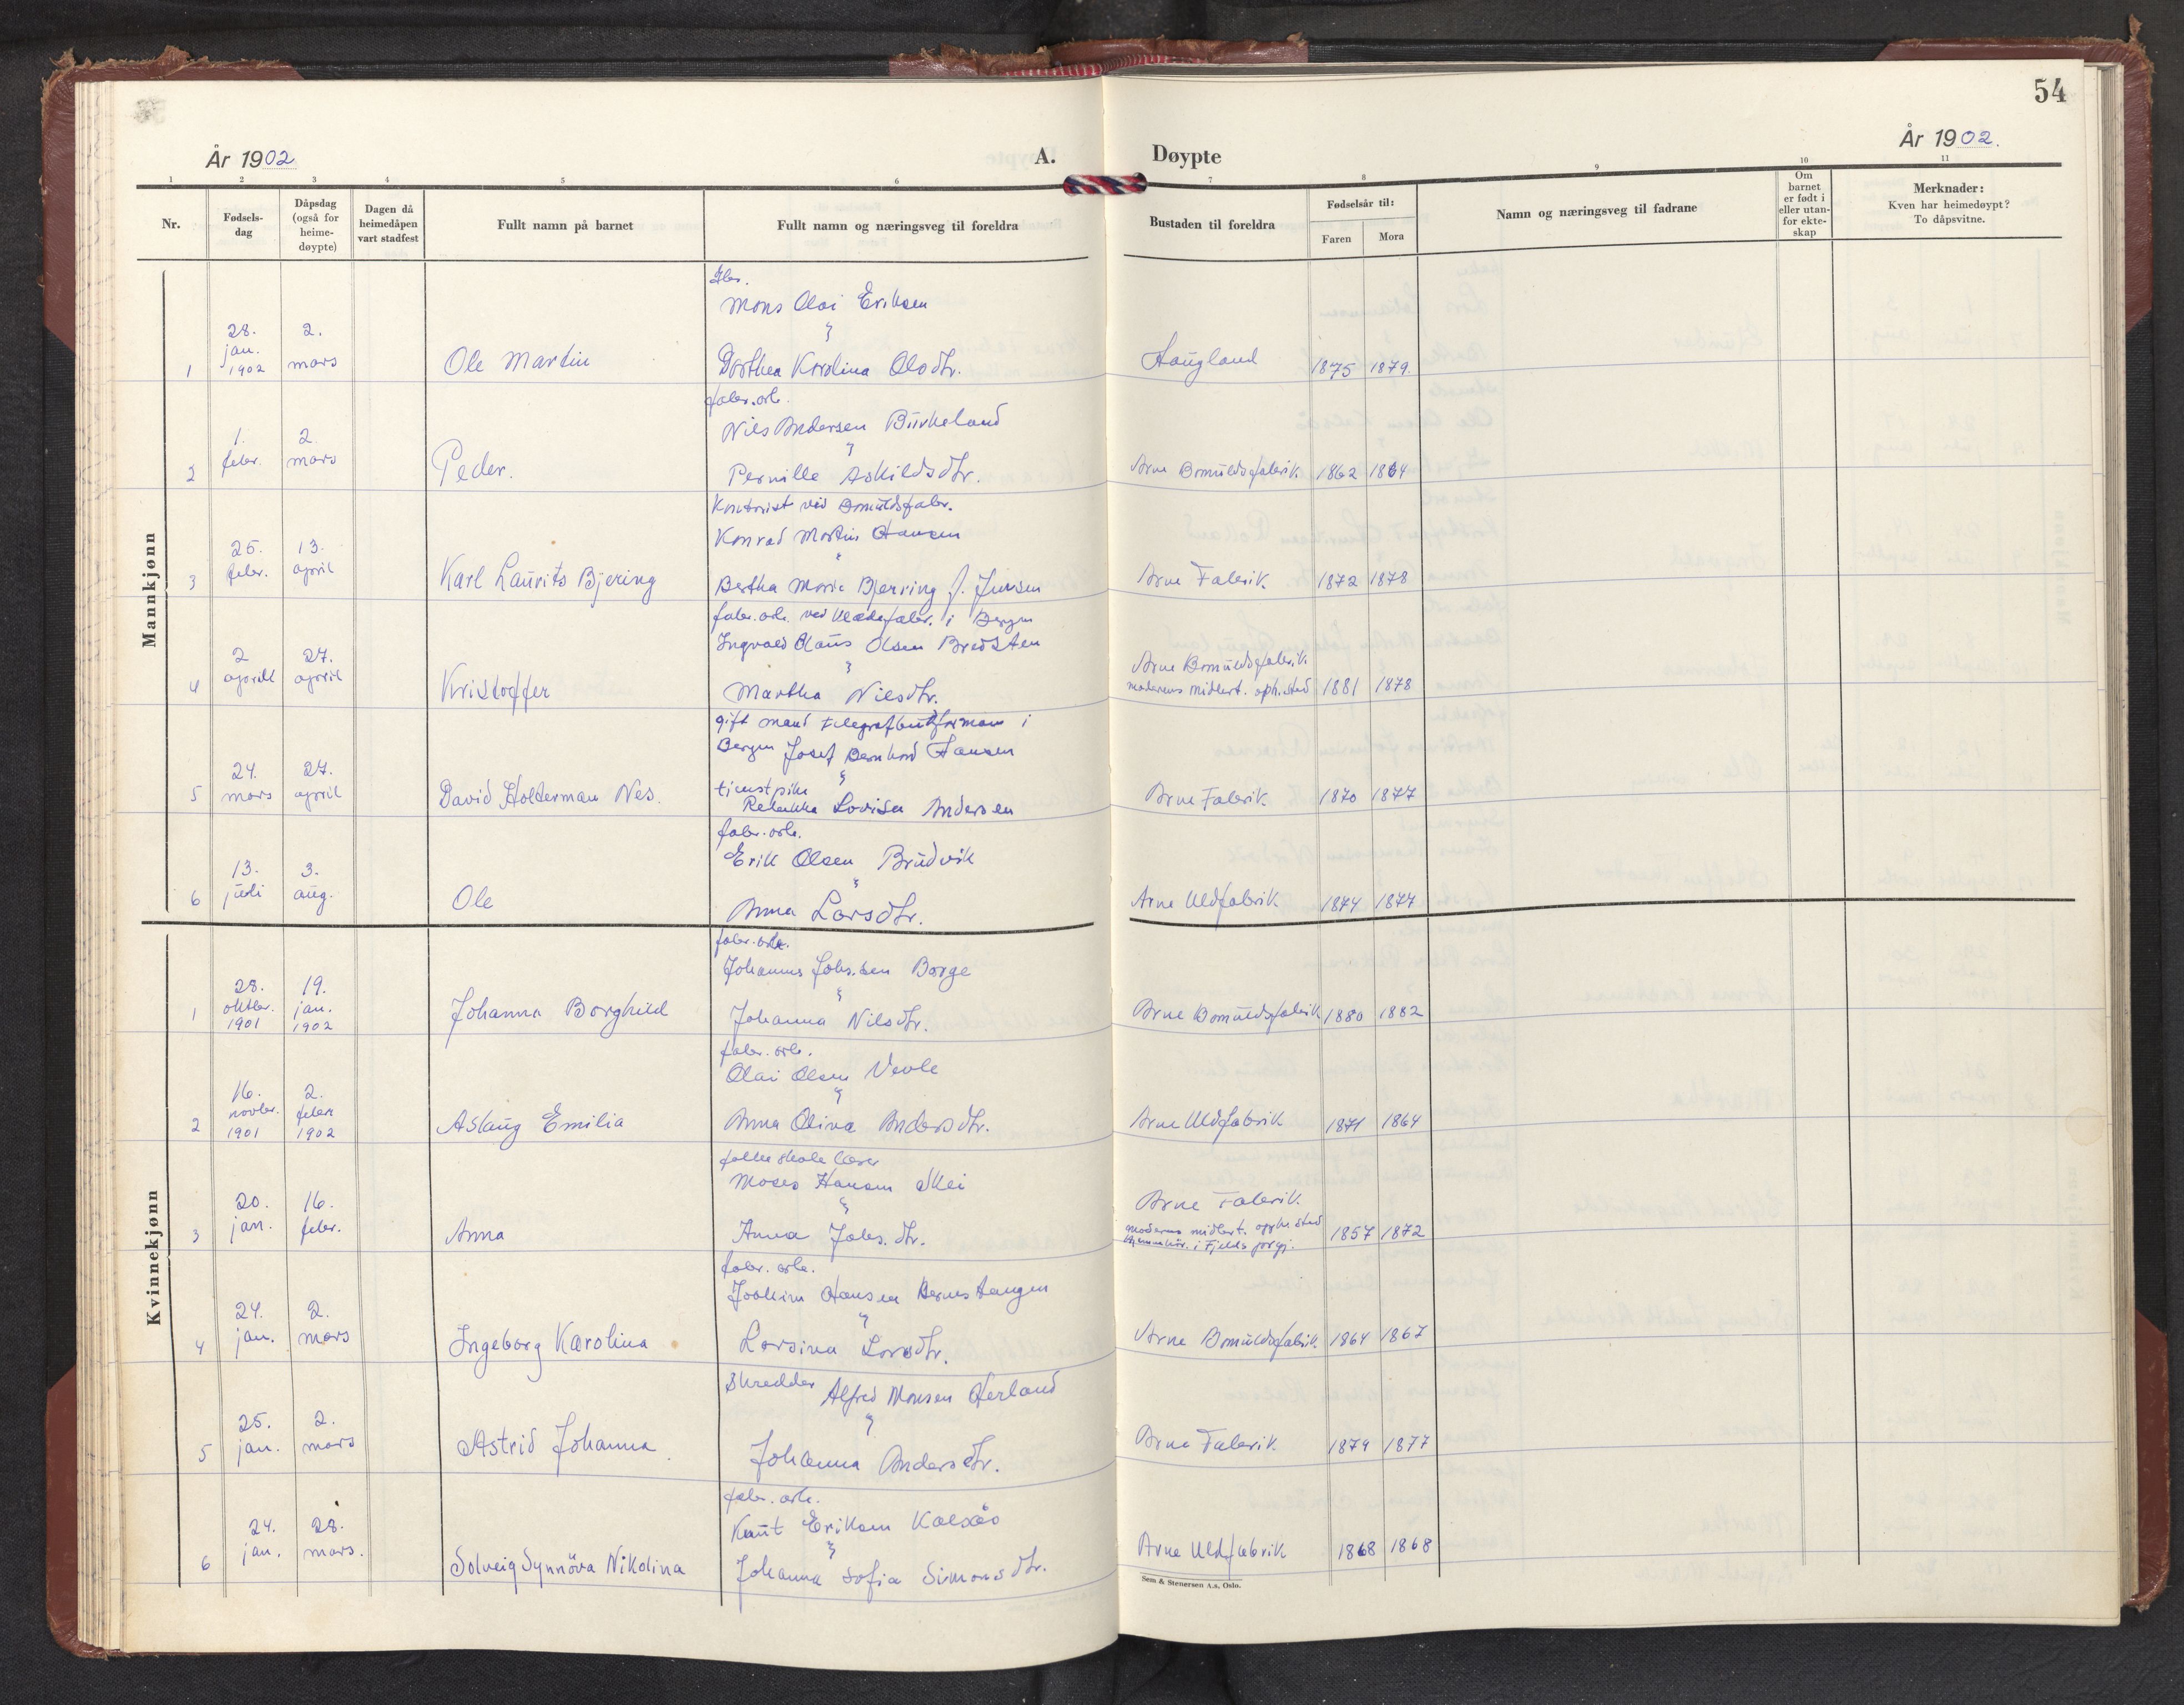 54
År 1902
A.
Døypte
År 1902.
1 2 3 4 5 6 7 8 9 10 11
Nr.
Fødsels-
dag
Dåpsdag
(også for
heime-
døypte)
Dagen då
heimedåpen
vart stadfest
Fullt namn på barnet
Fullt namn og næringsveg til foreldra
Bustaden til foreldra
Fødselsår til:
Faren Mora
Namn og næringsveg til fadrane
Om
barnet
er født i
eller utan-
for ekte-
skap
Merknader:
Kven har heimedøypt?
To dåpsvitne.
Mannkjønn
Mons Olai Eriksen
1 28. jan. 1902 2. mars Ole Martin Dorthea Karolina Olsdtr. Haugland 1875 1879.
fabr. arb.
Nils Andersen Birkeland
2 1. febr. 2. mars Peder. Pernille Askildsdtr. Arne Bomuldsfabrik 1862 1864
Kontorist ved Bomuldsfabr.
Konrad Martin Hansen
3 25. febr. 13. april Karl Laurits Bjering Bertha Marie Bjerring f. Jensen Arne Fabrik. 1872 1878
fabr. arb. ved Klædefabr. i Bergen
Ingvald Olaus Olsen Bredsten
4 2 april 27. april Kristoffer Martha Nilsdtr. Arne Bomuldsfabrik
moderens midlert. oph. sted 1881 1878
gift mand telegrafbudformann i
Bergen Josef Bernhard Hansen
tjenstpike
5 24. mars 27. april David Holterman Nes. Rebekka Lovisa Andersen Arne Fabrik. 1870 1877
fabr. arb.
Erik Olsen Brudvik
6 13. juli 3. aug. Ole Anna Larsdtr. Arne Uldfabrik 1874 1874
Kvinnekjønn
fabr. arb.
Johannes Johs.sen Borge
1 28. oktbr. 1901 19. jan. 1902 Johanna Borghild Johanna Nilsdtr. Arne Bomuldsfabrik 1880 1882
fabr. arb.
Olai Olsen Vevle
2 16. novbr. 1901 2. febr. 1902 Aslaug Emilia Anna Olina Andersdtr. Arne Uldfabrik 1871 1864
folkeskolelærer
Moses Hansen Skei
3 20. jan. 16. febr. Anna Anna Johs.dtr. Arne Fabrik.
moderens midlert. opph. sted
i Fjelds prgj. 1857 1872
fabr. arb.
Joakim Hansen Bernestangen
4 24. jan. 2. mars Ingeborg Karolina Larsina Larsdtr. Arne Bomuldsfabrik. 1864 1867
Skredder Alfred Monsen Herland
5 25. jan. 2. mars Astrid Johanna. Johanna Andersdtr. Arne Fabrik. 1874 1877
fabr. arb.
Knut Eriksen Kalsås
6 24. jan. 28. mars. Solveig Synnöva Nikolina Johanna Sofia Simonsdtr. Arne Uldfabrik 1868 1868
Sem & Stenersen A.s, Oslo.